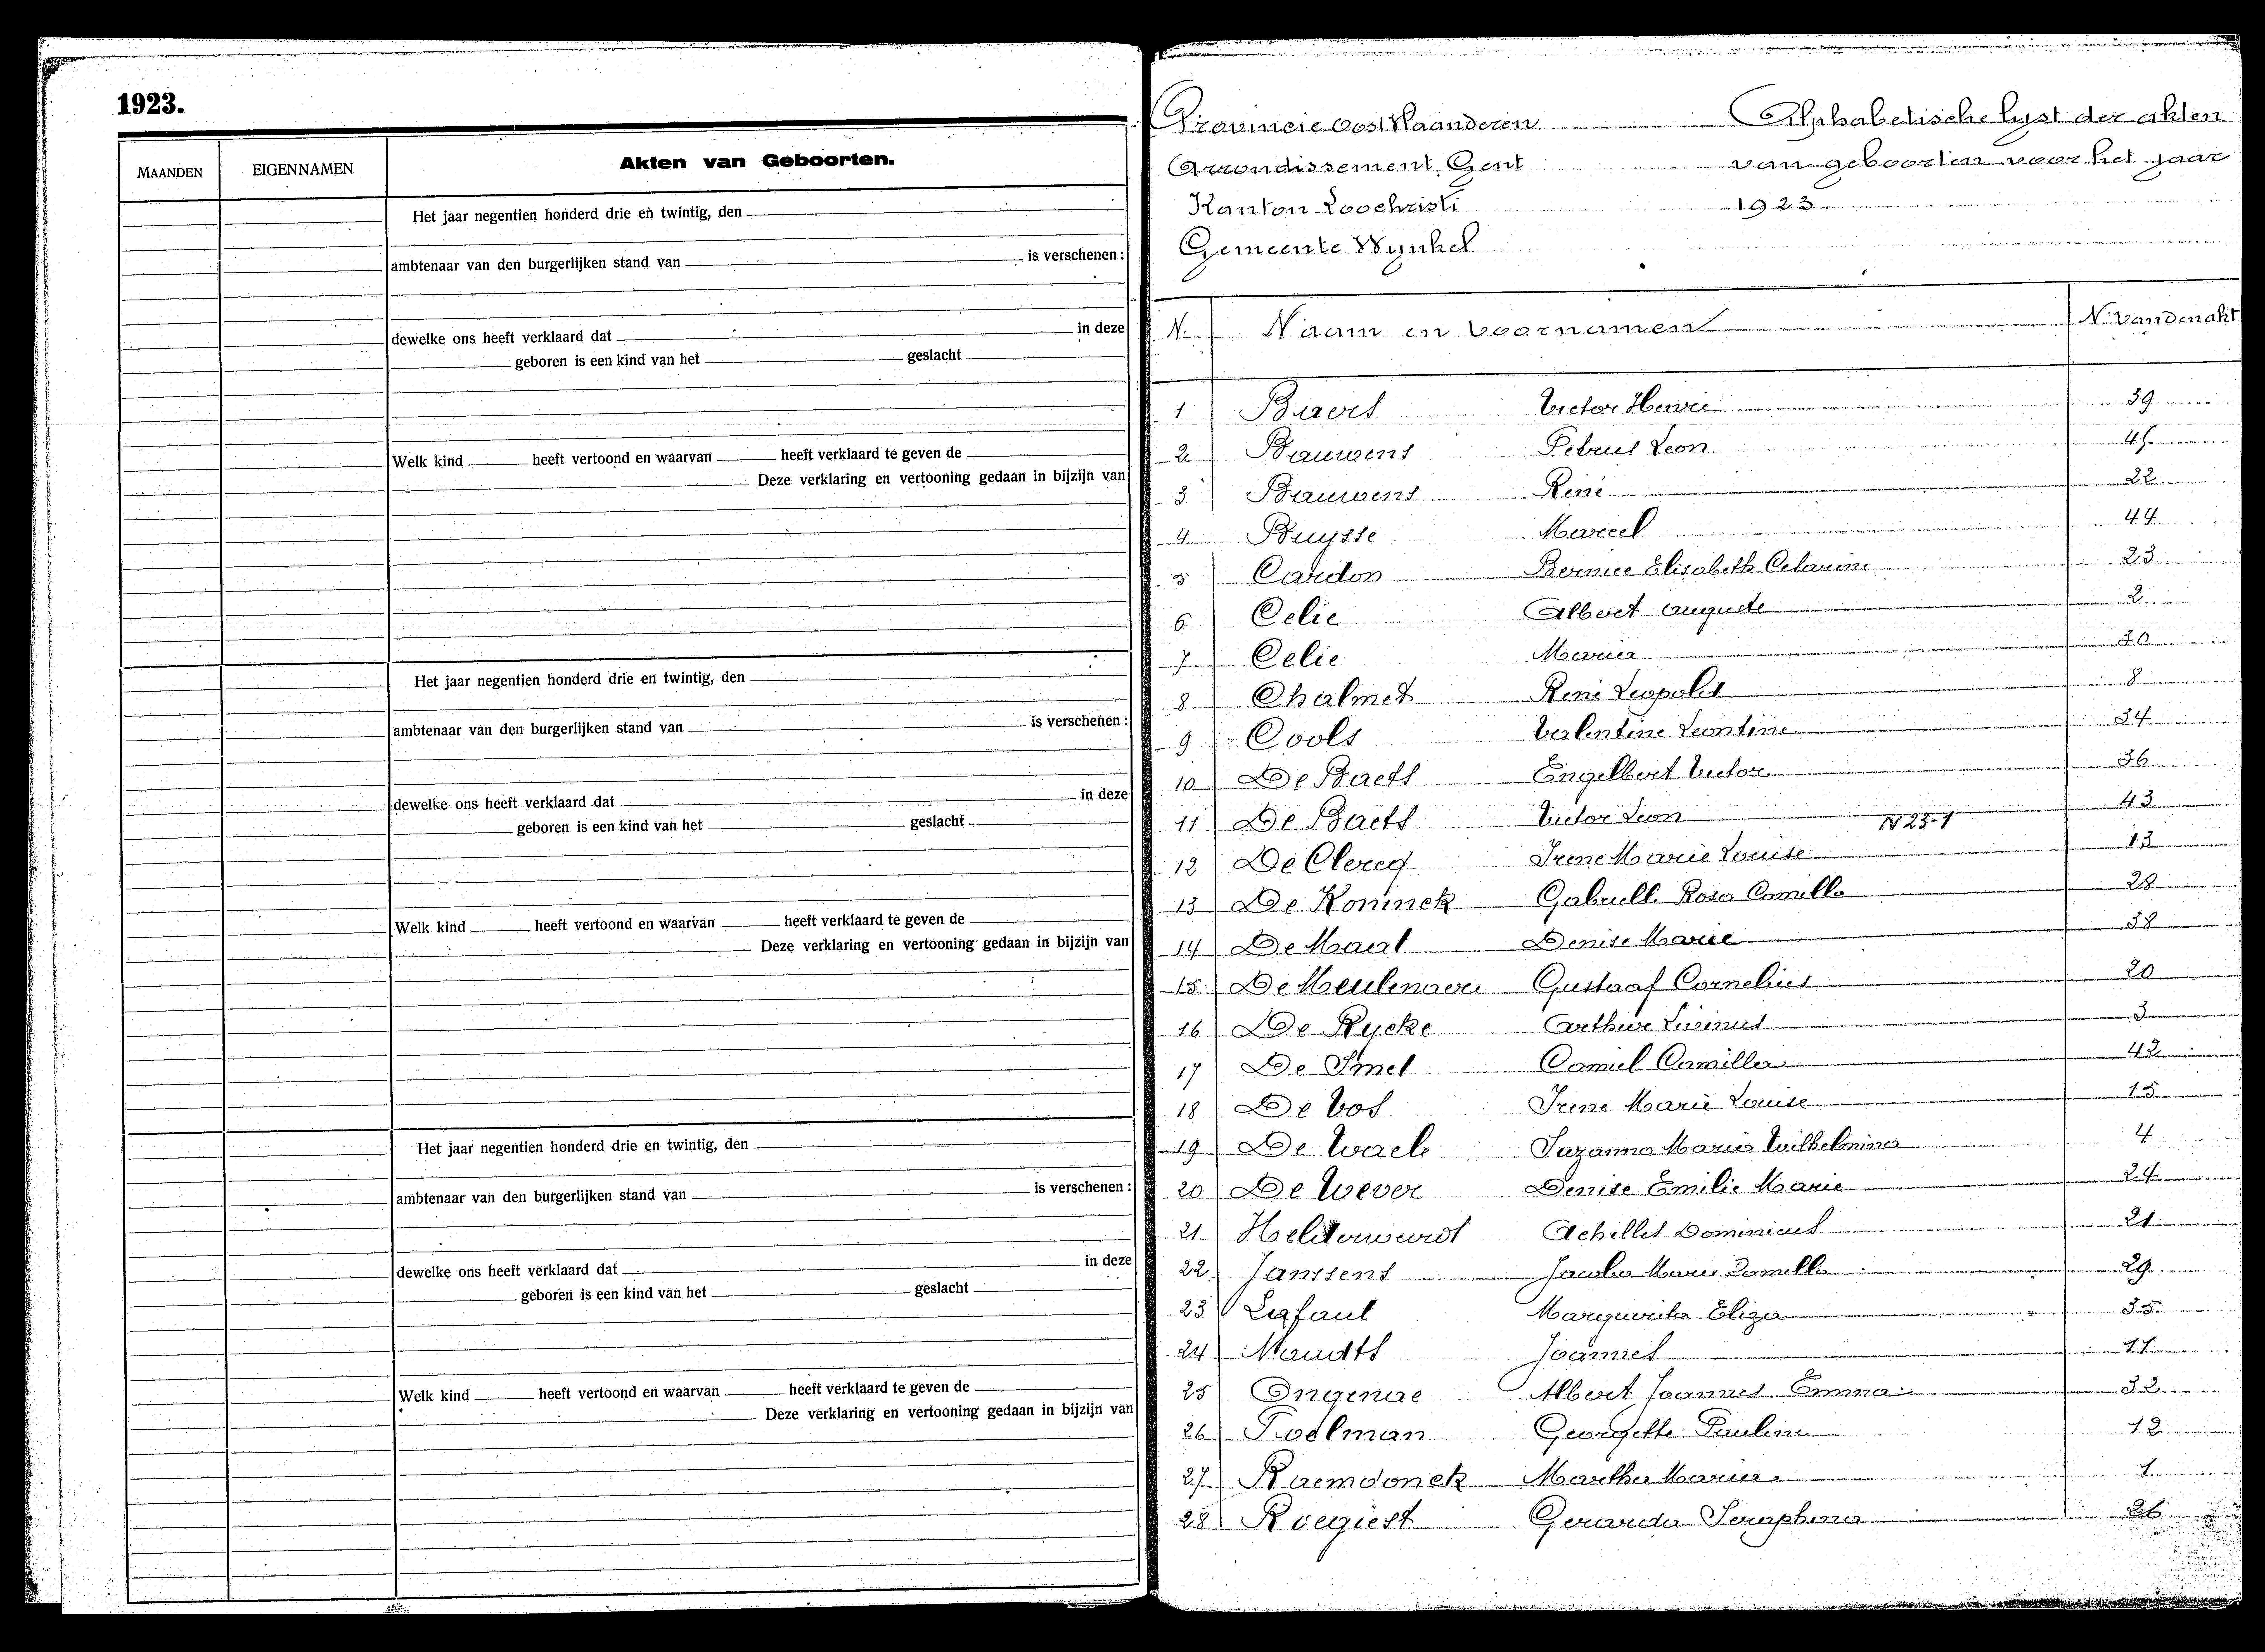 1923.
MAANDEN EIGENNAMEN Akten van Geboorten.
Het jaar negentien honderd drie en twintig, den
ambtenaar van den burgerlijken stand van is verschenen :
dewelke ons heeft verklaard dat in deze
geboren is een kind van het geslacht
Welk kind heeft vertoond en waarvan heeft verklaard te geven de
Deze verklaring en vertooning gedaan in bijzijn van
Het jaar negentien honderd drie en twintig, den
ambtenaar van den burgerlijken stand van is verschenen :
dewelke ons heeft verklaard dat in deze
geboren is een kind van het geslacht
Welk kind heeft vertoond en waarvan heeft verklaard te geven de
Deze verklaring en vertooning gedaan in bijzijn van
Het jaar negentien honderd drie en twintig, den
ambtenaar van den burgerlijken stand van is verschenen :
dewelke ons heeft verklaard dat in deze
geboren is een kind van het geslacht
Welk kind heeft vertoond en waarvan heeft verklaard te geven de
Deze verklaring en vertooning gedaan in bijzijn van
Provincie Oost Vlaanderen Alphabetische lyst der akten
Arrondissement Gent van geboorten voor het jaar
Kanton Loochristi 1923
Gemeente Wynkel
N. Naam en Voornamen N. van den akt
1 Baers Victor Henri 39
2 Bauwens Petrus Leon
3 Bauwens René 22
4 Buysse Marcel 44
5 Cardon Bernice Elisabeth 23
6 Celie Albert Auguste 2
7 Celie Maria 30
8 Chalmet René Leopold 8
9 Cools Valentine Leontine 34
10 De Baets Engelbert Victor 36
11 De Baets Victor Leon 43
N 23-1
12 De Clercq Irene Marie Louise 13
13 De Koninck Gabrielle Rosa Camilla 28
14 De Maat Denise Marie 38
15 De Meulenaere Gustaaf Cornelius 20
16 De Rycke Arthur Livinus 3
17 De Smet Camiel Camilla 42
18 De Vos Irene Marie Louise 15
19 De Waele Suzanna Maria Wilhelmina 4
20 De Wever Denise Emilie Marie 24
21 Achilles Dominicus 21
22 Janssens Jacoba Maria 29
23 Lafaut Marguerita Eliza 35
24 Joannes 17
25 Ongenae Albert Joannes Emma 32
26 Poelman Georgette Pauline 12
27 Raemdonck Martha Maria 1
28 Roegiest Gerarda Seraphina 26